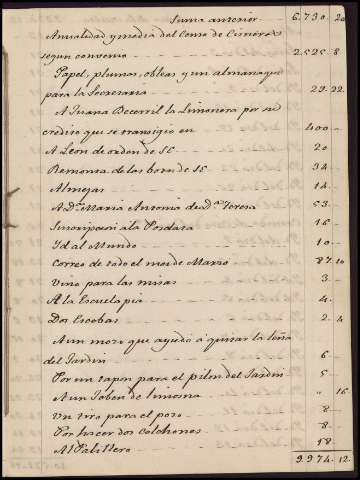 Suma anterior 6.730. 20
Anualidad y media del Censo de Cisneros
segun convenio 2.525. 8
Papel, plumas, obleas y un almanaque
para la Secretaria 29. 22.
A Juana Becerril la Limonera por su
credito que se transigio en 400 "
A Leon de orden de SE 20
Remonta de las botas de SE 34
Almejas 14.
A D.ª Maria Antonia de D.ª Teresa 53.
Suscripcion a la Posdata 16
Id al Mundo 10.
Correo de todo el mes de Marzo 87. 10
Vino para las misas 3.
A la Escuela pia 4.
Dos Escobas 2. 4
A un mozo que ayudó a quitar la leña
del Jardin 6
Por un tapon para el pilon del Jardin 5
A un Joben de limosna " 16
Un tiro para el pozo 8
Por hacer dos Colchones 8
Al 58.
9.974. 12.